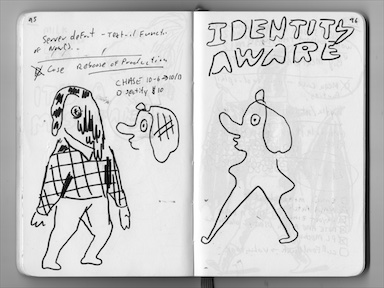 95
Server defect - Textual Function
of
Case Release of Production
CHASE 10-6 → 10/10
D spotify $10
96
IDENTITY
AWARE